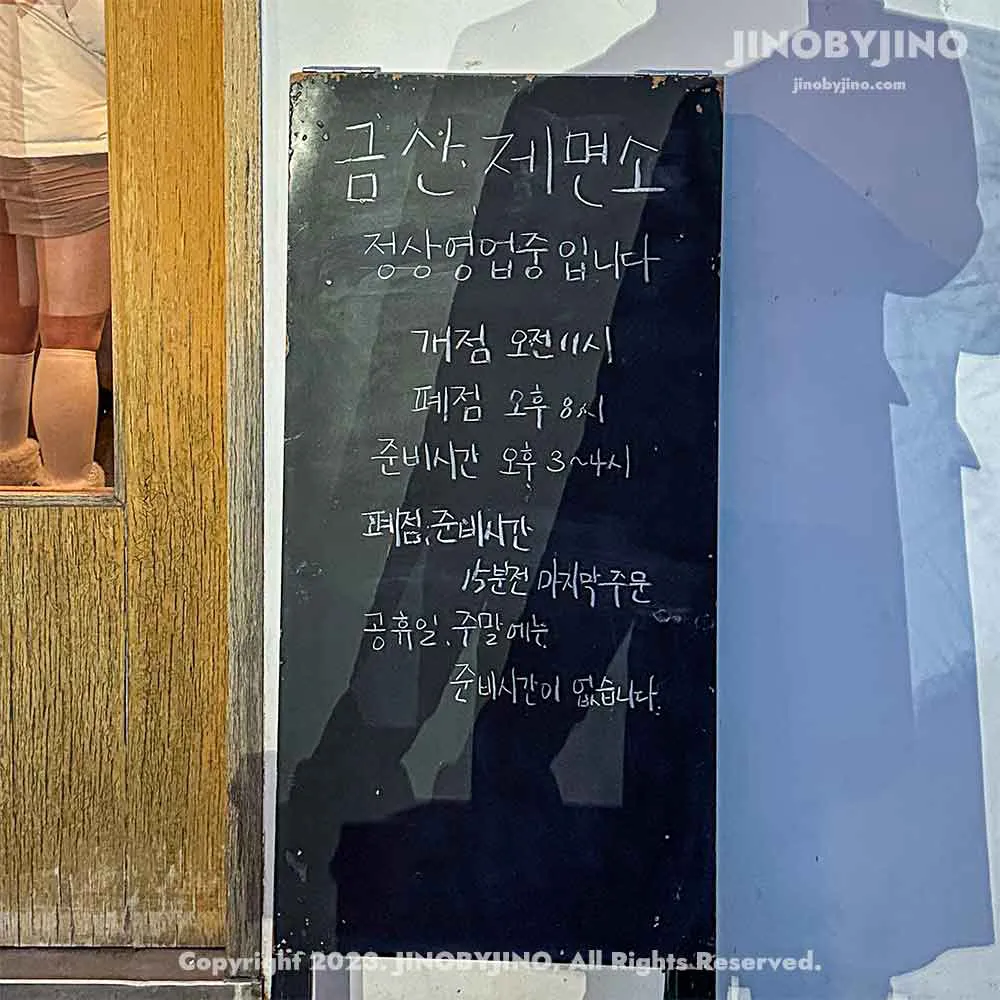 JINOBYJINO
jinobyjino.com
금산제면소
정상영업중입니다
개점 오전 11시
폐점 오후 8시
준비시간 오후 3~4시
폐점,준비시간
15분전 마지막주문
공휴일,주말에는
준비시간이 없습니다.
Copyright 2023. JINOBYJINO, All Rights Reserved.